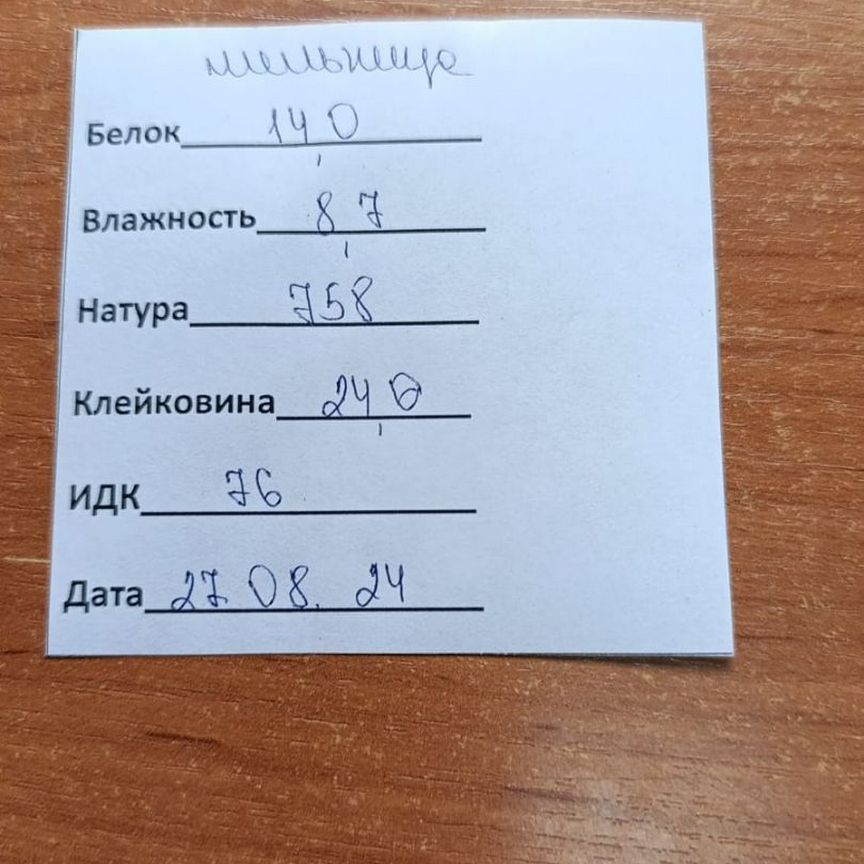 мельница
Белок 14,0
Влажность 8,7
Натура 758
Клейковина 24,0
ИДК 76
Дата 27.08.24